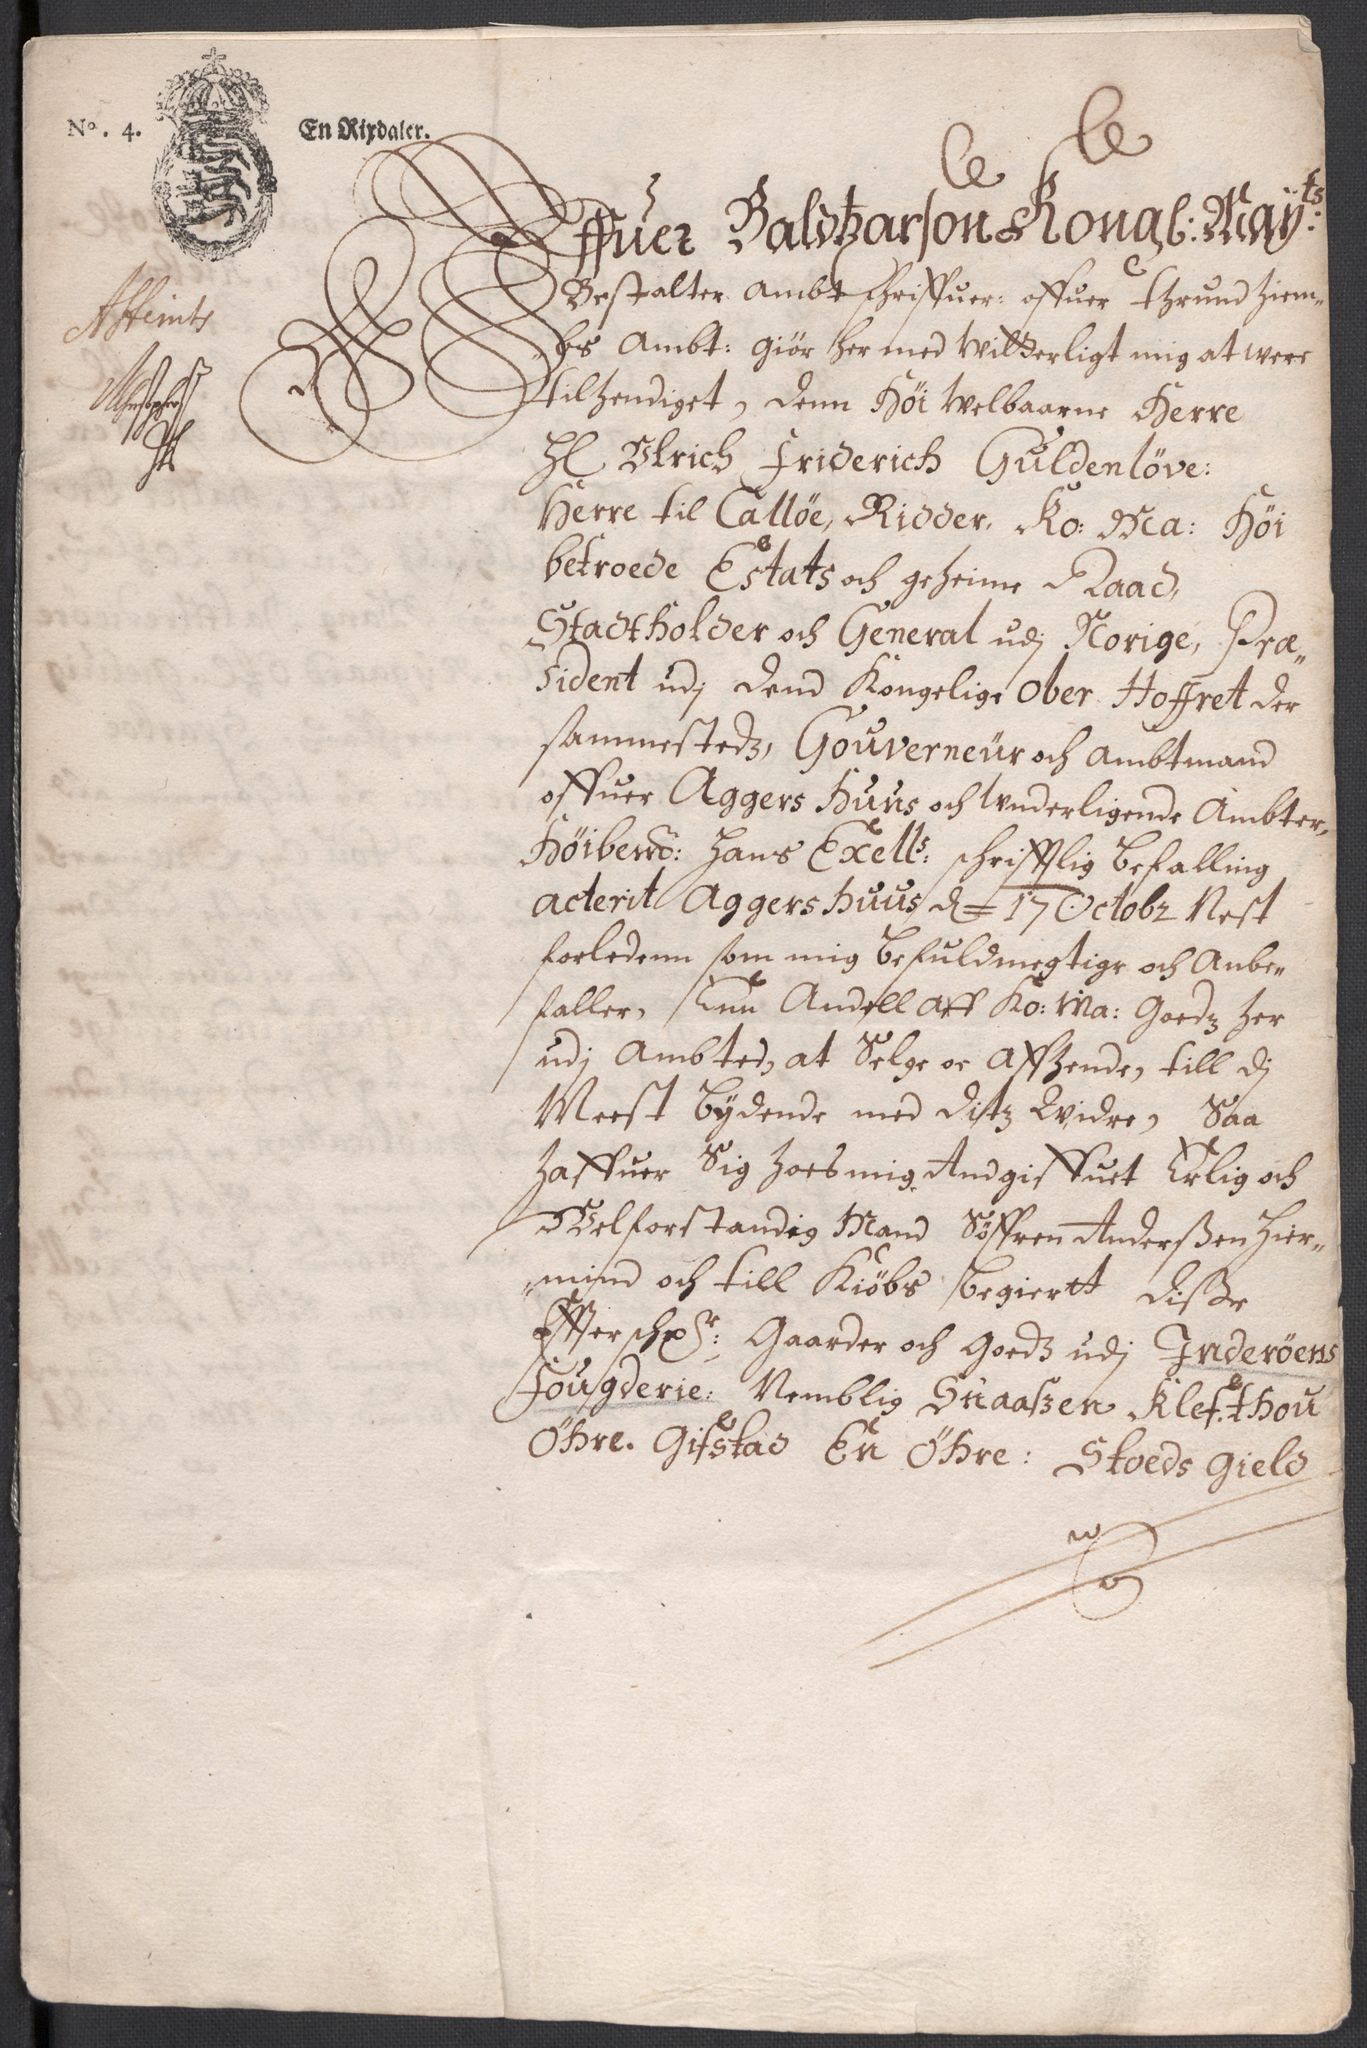 No. 4. En Rixdaler.
Iffuer Baldtzarson Kongl: Maÿ:ts
Bestalter Ambt schriffuer: offuer thrundhiem-
bs Ambt: giör her med Witterligt mig at were
tilhendiget, denn Höi Welbaarne Herre
Hl Ulrich Friderich Guldenlöve:
Herre til Callöe, Ridder, Ko: Ma: Höi
betroede Estats och geheime Raad,
Stadtholder och General udj Norige, Præ-
sident udj dend Kongelige Ober Hoffret der
sammestedz, Gouverneur och Ambtmand
offuer Aggers Huus och Underligende Ambter,
Höibemt: Hans Exells: schrifftlig Befalling
acterit Aggershuus d= 17 Octobr Nest
forledenn som mig befuldmegtige och Anbe-
faller, Enn Andell Aff Ko: Ma: Goedz her
udj Ambted, at Selge oc Affhende, till dj
Meest bÿdende med ditz Widre, Saa
haffuer Sig hoes mig Andgiffuet Erlig och
Welforstandig Mand Söffren Anderßen Hier-
mind och till Kiöbs begiertt diße
Effterschr:e Gaarder och Goedz udj Inderöens
Fougderie: Nemblig Snaaßen Klefthou
Öhre. Gifstad En Öhre: Stoeds Gield